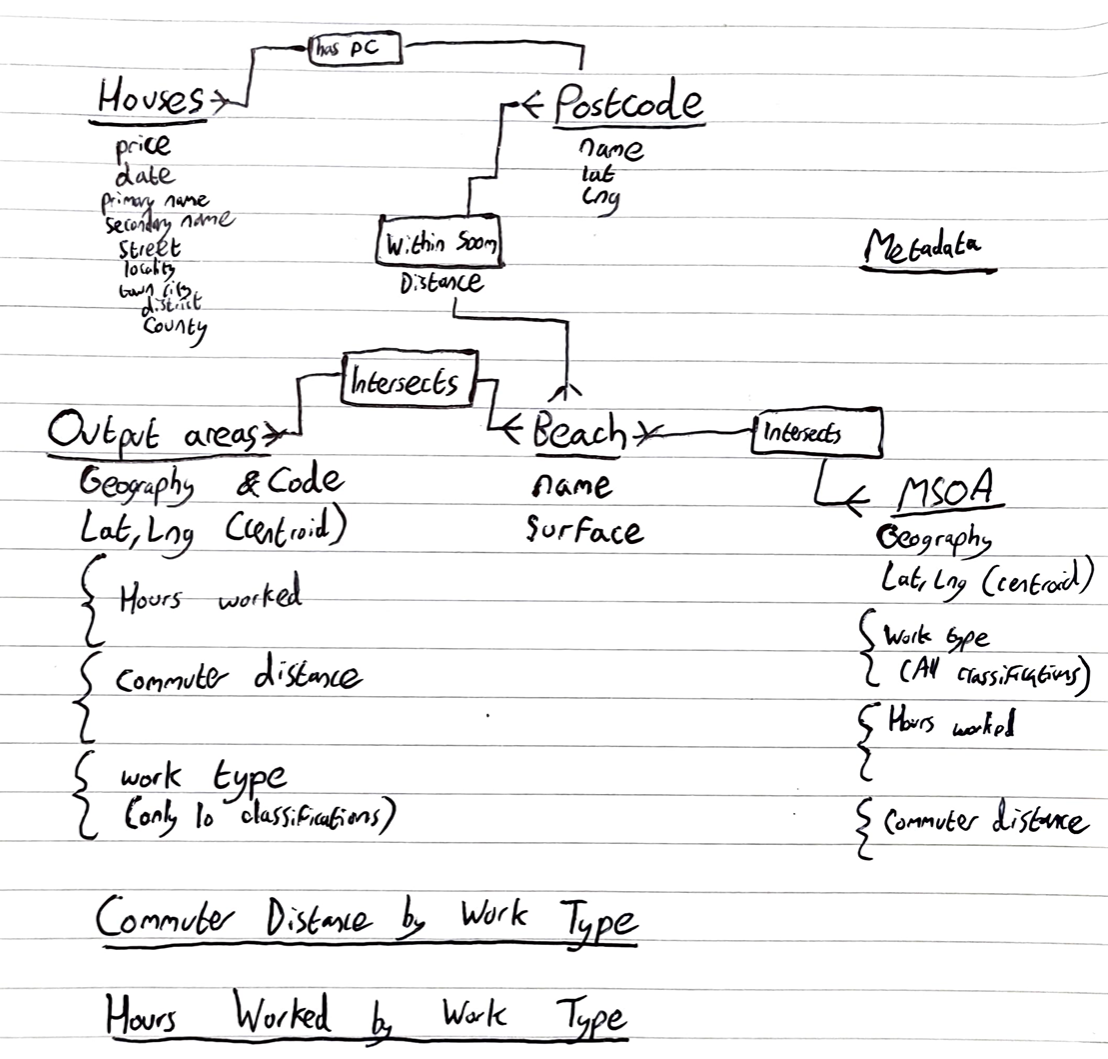 has PC
Houses
price
date
primary name
secondary name
street
locality
town city
district
County
Postcode
name
lat
lng
Within 500m
Distance
Metadata
Intersects
Output areas
Geography & Code
Lat, Lng (centroid)
Hours worked
Commuter distance
work type
(only 10 classifications)
Beach
name
surface
Intersects
MSOA
Geography
Lat, Lng (centroid)
Work type
(All classifications)
Hours worked
Commuter distance
Commuter Distance by Work Type
Hours Worked by Work Type